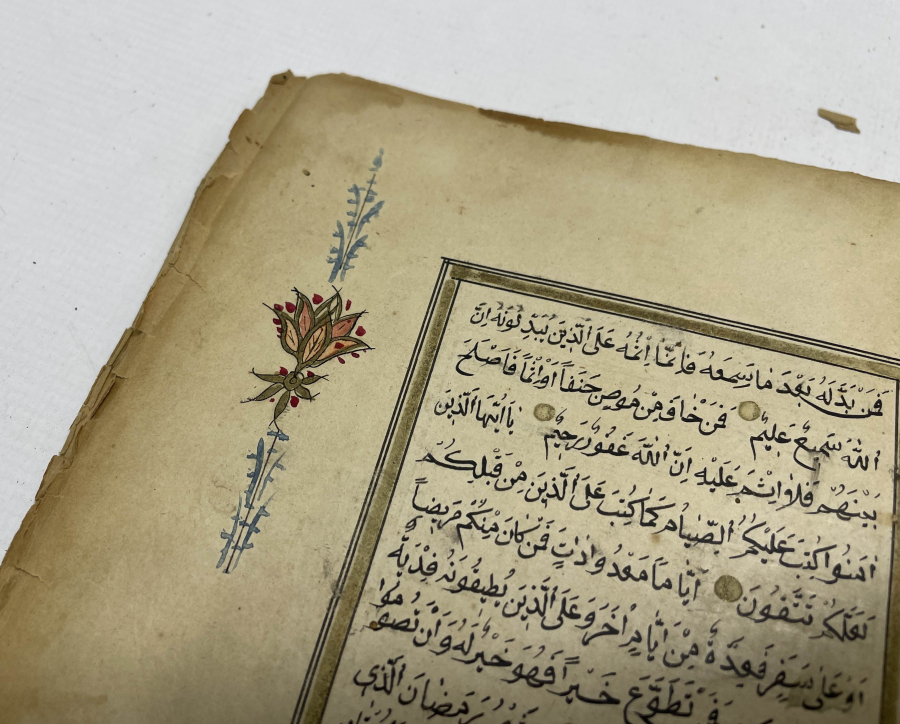 فَمَنْ بَدَّلَهُ بَعْدَ مَا سَمِعَهُ فَاِنَّمَٓا اِثْمُهُ عَلَى الَّذِينَ يُبَدِّلُونَهُ اِنَّ
اللّٰهَ سَمِيعٌ عَلِيمٌ فَمَنْ خَافَ مِنْ مُوصٍ جَنَفًا اَوْ اِثْمًا فَاَصْلَحَ
بَيْنَهُمْ فَلَٓا اِثْمَ عَلَيْهِ اِنَّ اللّٰهَ غَفُورٌ رَحِيمٌ يَٓا اَيُّهَا الَّذِينَ
اٰمَنُوا كُتِبَ عَلَيْكُمُ الصِّيَامُ كَمَا كُتِبَ عَلَى الَّذِينَ مِنْ قَبْلِكُمْ
لَعَلَّكُمْ تَتَّقُونَ اَيَّامًا مَعْدُودَاتٍ فَمَنْ كَانَ مِنْكُمْ مَرِيضًا
اَوْ عَلٰى سَفَرٍ فَعِدَّةٌ مِنْ اَيَّامٍ اُخَرَ وَعَلَى الَّذِينَ يُطِيقُونَهُ فِدْيَةٌ
تَطَوَّعَ خَيْرًا فَهُوَ خَيْرٌ لَهُ وَاَنْ تَصُومُوا
رَمَضَانَ الَّذِي